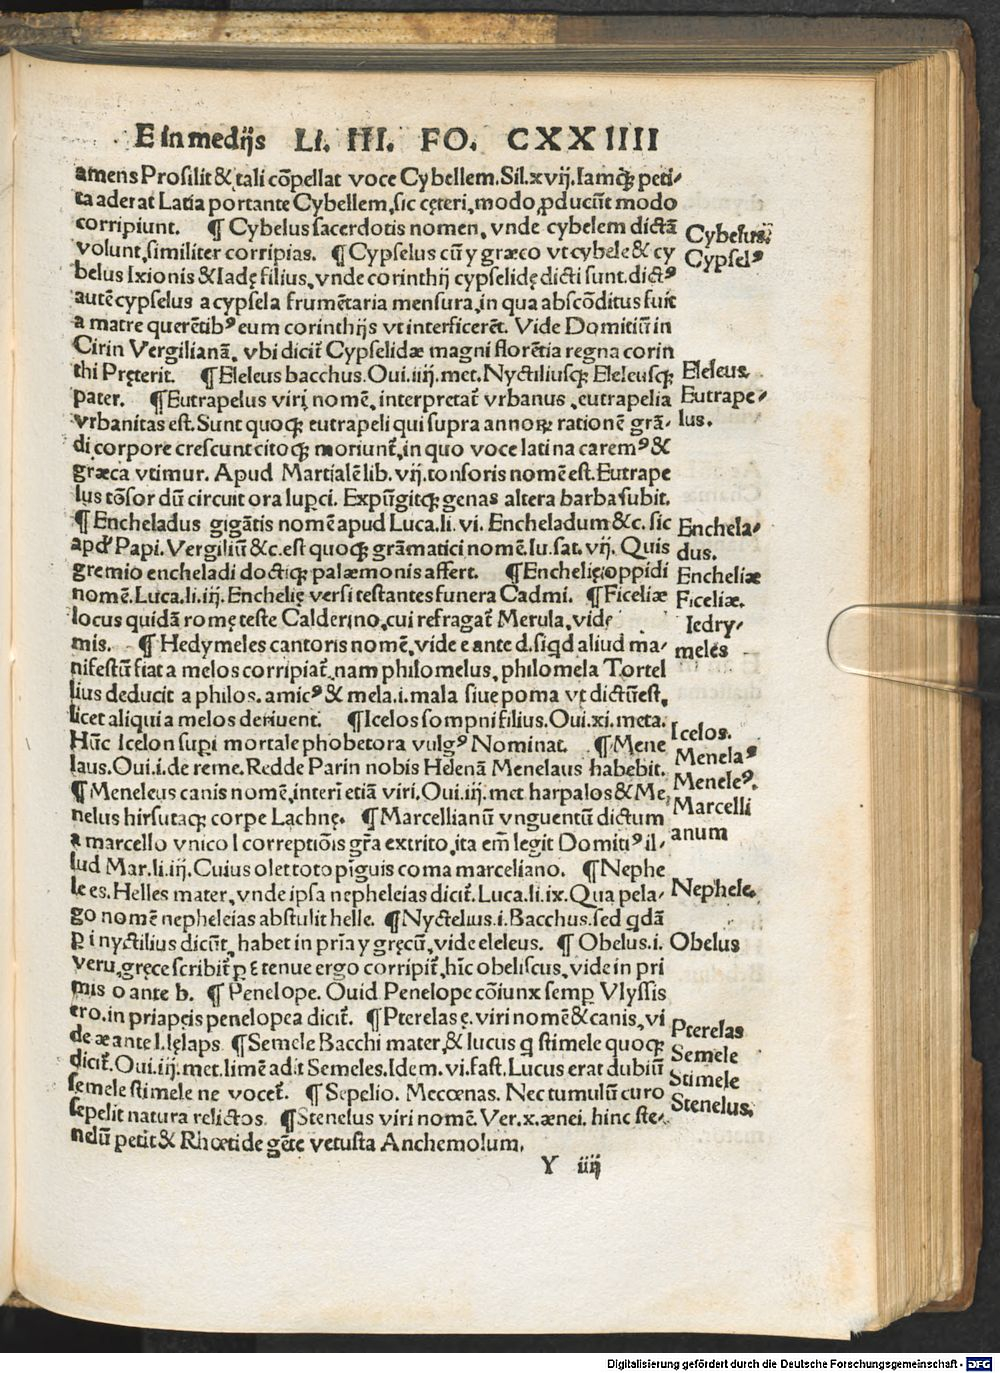 E in medijs LI. III. FO. CXXIIII
amens Prosilit & tali cōpellat voce Cybellem. Sil. xvij. Iamqꝫ peti-
ta aderat Latia portante Cybellem, sic cęteri, modo ꝓducūt modo
corripiunt. ¶ Cybelus sacerdotis nomen, vnde cybelem dictā
volunt, similiter corripias. ¶ Cypselus cū y græco vt cybele & cy
belus Ixionis & Iadę filius, vnde corinthij cypselidę dicti sunt. dictꝰ
autē cypselus a cypsela frumētaria mensura, in qua abscōditus fuit
a matre querētibꝰ eum corinthijs vt interficerēt. Vide Domitiū in
Cirin Vergilianā, vbi dicit̄ Cypselidæ magni florētia regna corin
thi Pręterit. ¶ Eleleus bacchus. Oui. iiij. met. Nyctiliusqꝫ Eleleusqꝫ
pater. ¶ Eutrapelus viri nomē, interpretat̄ vrbanus, eutrapelia
vrbanitas est. Sunt quoqꝫ eutrapeli qui supra annoꝝ rationē grā-
di corpore crescunt citoqꝫ moriunt̄, in quo voce latina caremꝰ &
græca vtimur. Apud Martialē lib. vij. tonsoris nomē est. Eutrape
lus tōsor dū circuit ora luperci. Expūgitqꝫ genas altera barba subit.
¶ Encheladus gigātis nomē apud Luca. li. vi. Encheladum &c. sic
apd' Papi. Vergiliū &c. est quoqꝫ grāmatici nomē. Iu. sat. vij. Quis
gremio encheladi doctiqꝫ palæmonis affert. ¶ Enchelię oppidi
nomē. Luca. li. iij. Enchelię versi testantes funera Cadmi. ¶ Ficeliæ
locus quidā romę teste Calderino, cui refragat̄ Merula, vide
mis. ¶ Hedymeles cantoris nomē, vide e ante d. siqd aliud ma-
nifestū fiat a melos corripiat̄, nam philomelus, philomela Tortel
lius deducit a philos. amicꝰ & mela. i. mala siue poma vt dictū est,
licet aliqui a melos deriuent. ¶ Icelos sompni filius. Oui. xi. meta.
Hūc Icelon superi mortale phobetora vulgꝰ Nominat. ¶ Mene
laus. Oui. i. de reme. Redde Parin nobis Helenā Menelaus habebit.
¶ Meneleus canis nomē, interī etiā viri. Oui. iij. met harpalos & Me,
nelus hirsutaqꝫ corpe Lachnę. ¶ Marcellianū vnguentū dictum
a marcello vnico l correptiōis gr̄a extrito, ita em̄ legit Domitiꝰ il-
lud Mar. li. iij. Cuius olet toto pīguis coma marceliano. ¶ Nephe
le es. Helles mater, vnde ipsa nepheleias dicit̄. Luca. li. ix. Qua pela-
go nomē nepheleias abstulit helle. ¶ Nyctelius. i. Bacchus. sed qdā
ꝑ i nyctilius dicūt, habet in pr̄ia y gręcū, vide eleleus. ¶ Obelus. i.
veru, gręce scribit̄ ꝑ ε tenue ergo corripit̄, hīc obeliscus, vide in pri
mis o ante b. ¶ Penelope. Ouid Penelope cōiunx semꝑ Vlyssis
ero. in priapeis penelopea dicit̄. ¶ Pterelas ę. viri nomē & canis, vi
de æ ante l. lęlaps ¶ Semele Bacchi mater, & lucus q stimele quoqꝫ
dicit̄. Oui. iij. met. limē adit Semeles. Idem. vi. fast. Lucus erat dubiū
semele stimele ne vocet̄. ¶ Sepelio. Mecœnas. Nec tumulū curo
sepelit natura relictos. ¶ Stenelus viri nomē. Ver. x. ænei. hinc ste-
nelū petit & Rhœti de gēte vetusta Anchemolum.
Y iiij
Cybelus.
Cypselꝰ
Eleleus.
Eutrape-
lus.
Enchela-
dus.
Encheliæ
Ficeliæ.
Iedry-
meles
Icelos.
Menelaꝰ
Meneleꝰ.
Marcelli
anum
Nephele.
Obelus
Pterelas
Semele
Stimele
Stenelus.
Digitalisierung gefördert durch die Deutsche Forschungsgemeinschaft - DFG